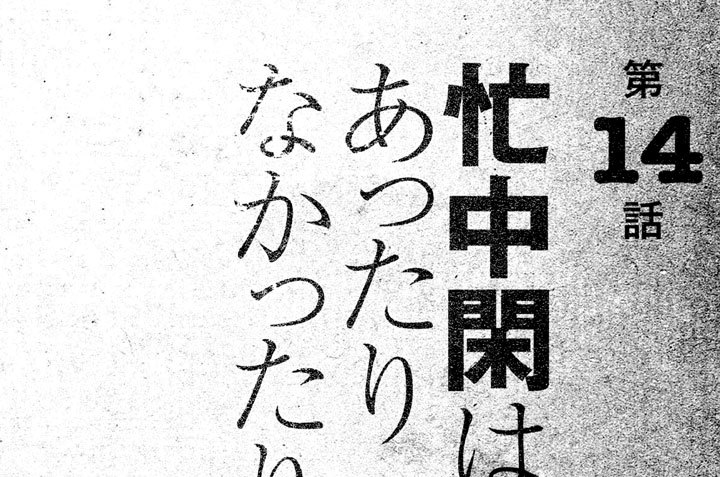 第14話
忙中閑は
あったり
なかったり